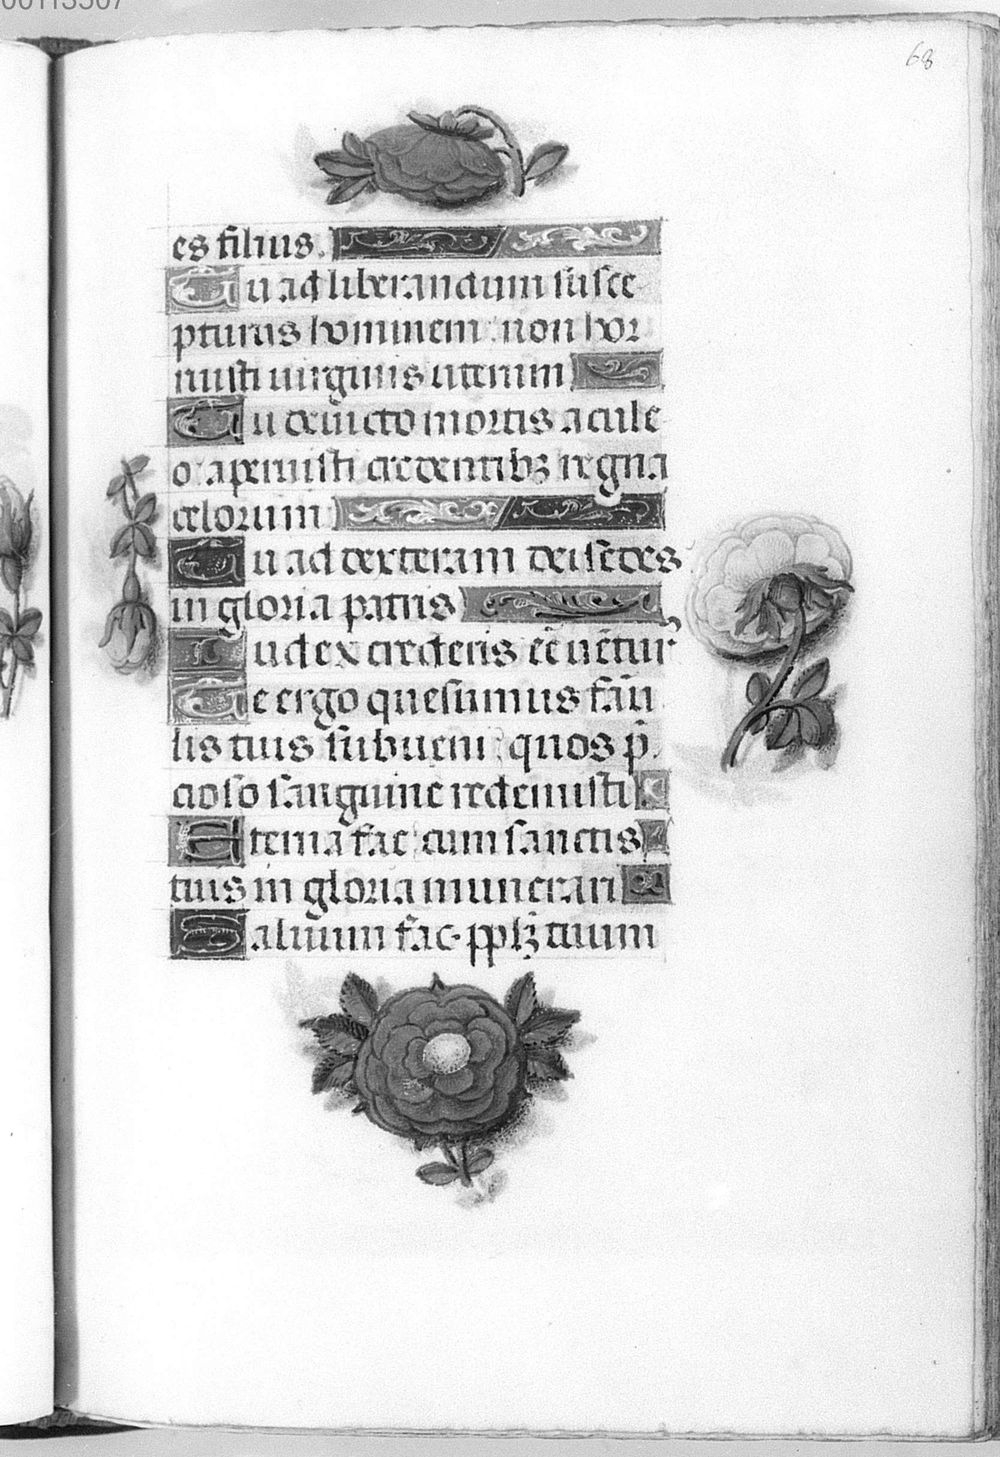 68
es filius.
Tu ad liberandum susce
pturus hominem: non hor
ruisti uirginis uterum
Tu deuicto mortis acule
o: aperuisti credentibꝫ regna
celorum
Tu ad dexteram dei sedes
in gloria patris
Iudex crederis eē uētur᾿
Te ergo quesumus famu
lis tuis subueni: quos p̄
cioso sanguine redemisti
Eterna fac cum sanctis
tuis in gloria munerari
Saluum fac pplꝫ tuum